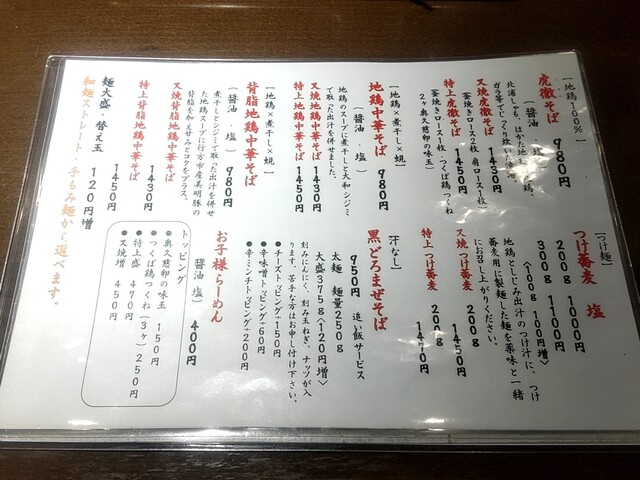 【地鶏100%】
虎徹そば
(醤油 塩) 980円
北浦しゃも、はかた地どり、地鶏、
ガラ等でじっくり炊いた醤油、塩。
叉焼虎徹そば 1430円
(釜焼きロース2枚 肩ロース1枚)
特上虎徹そば 1450円
釜焼きロース1枚・つくば鶏つくね
2ヶ奥久慈卵の味玉)
【地鶏×煮干し×蜆】
地鶏中華そば
(醤油 塩) 980円
地鶏のスープに煮干しと大和シジミ
で取った出汁を併せました。
叉焼地鶏中華そば 1430円
特上地鶏中華そば 1450円
【地鶏×煮干し×蜆】
背脂地鶏中華そば
(醤油 塩) 980円
煮干しとシジミで取った出汁を併せ
た地鶏スープに行方市産美明豚の
背脂を加えせみとコクをプラス。
叉焼背脂地鶏中華そば 1430円
特上背脂地鶏中華そば 1450円
麺大盛・替え玉 120円増
細麺ストレート 手もみ麺から選べます。
【つけ麺】
つけ蕎麦 塩
200g 1000円
300g 1100円
<100g 100円増>
地鶏としじみ出汁のつけ汁に、つけ
蕎麦用に製麺した麺を薬味と一緒
にお召し上がりください。
叉焼つけ蕎麦 200g 1450円
特上つけ蕎麦 200g 1470円
【汁なし】
黒どろまぜそば
950円 追い飯サービス
太麺 麺量250g
大盛375g<120円増>
刻みにんにく、刻み玉ねぎ、ナッツが入
ります。苦手な方はお申し付け下さい。
●チーズトッピング+150円
●辛味増トッピング+60円
●辛ミンチトッピング+200円
お子様らーめん
(醤油 塩) 400円
トッピング
●奥久慈卵の味玉 150円
●つくば鶏つくね(3ヶ)250円
●特上盛 470円
●叉焼増 450円